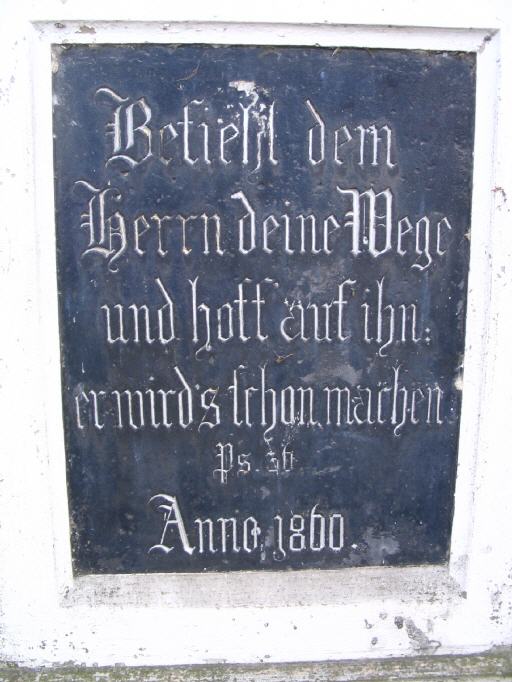 Befiehl dem
Herrn deine Wege
und hoff auf ihn:
er wird's schon machen
Ps.
Anno 1860.